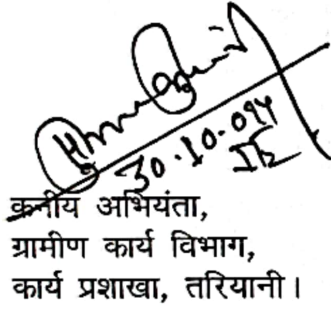 30.10.094
JE
कनीय अभियंता,
ग्रामीण कार्य विभाग,
कार्य प्रशाखा, तरियानी।